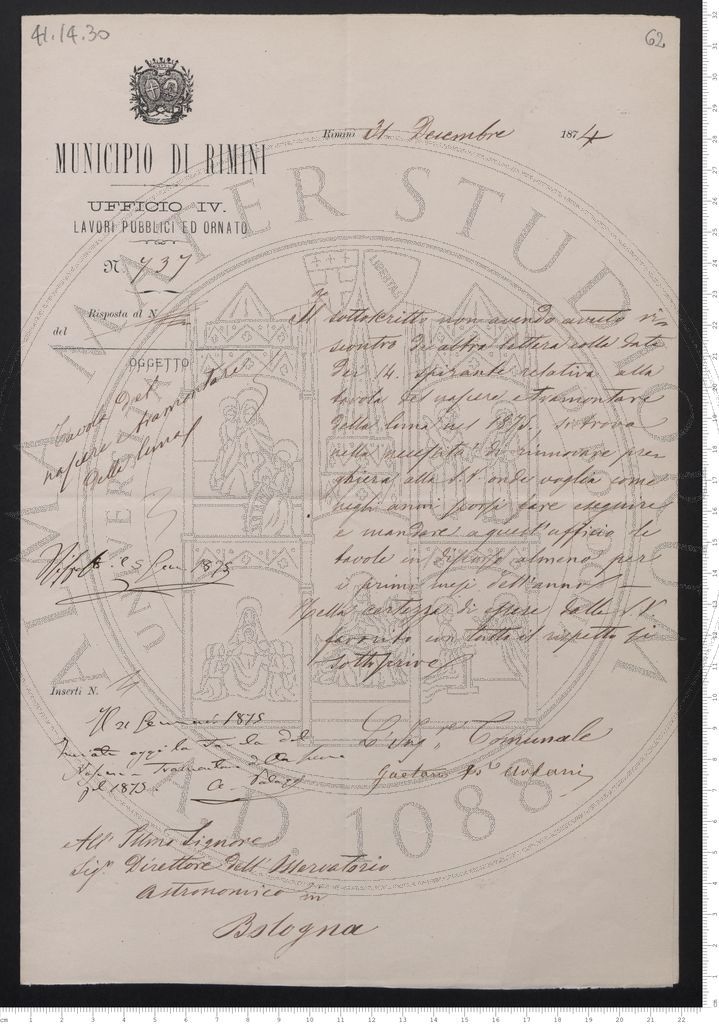 41.14.30
62
Rimini 31 Decembre 1874
MUNICIPIO DI RIMINI
UFFICIO IV.
LAVORI PUBBLICI ED ORNATO
N. 737
Risposta al N.
del
OGGETTO
Tavola del
nascere e tramontare
della luna
Il sottoscritto non avendo avuto ri-
scontro di altra lettera colla data
del 14. spirante relativa alla
tavola del nascere e tramontare
della luna nel 1875, si trova
nella necessità di rinnovare pre-
ghiera alla S.V. onde voglia come
negli anni scorsi fare eseguire
e mandare a quest'ufficio le
tavole in discorso almeno per
i primi mesi dell'anno
Nella certezza di essere dalla S.V
favorito con tutto il rispetto si
sottoscrive
5 Genn. 1875
Inserti N.
Il 21 Gennaio 1875
Inviata oggi la Tavola del
Nascere e Tramontare della Luna
pel 1875
L'Ing.re Comunale
Gaetano
All' Illmo Signore
Sig.r Direttore dell'Osservatorio
Astronomico in
Bologna
ALMA MATER STUDIORUM
A.D. 1088
LIBERTAS
cm 1 2 3 4 5 6 7 8 9 10 11 12 13 14 15 16 17 18 19 20 21 22